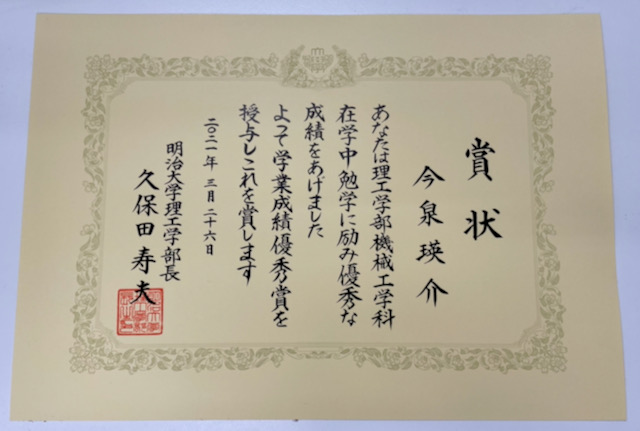 賞状
今泉瑛介
あなたは理工学部機械工学科
在学中勉学に励み優秀な
成績をあげました
よって学業成績優秀賞を
授与しこれを賞します
二〇二一年三月二十六日
明治大学理工学部長
久保田寿夫